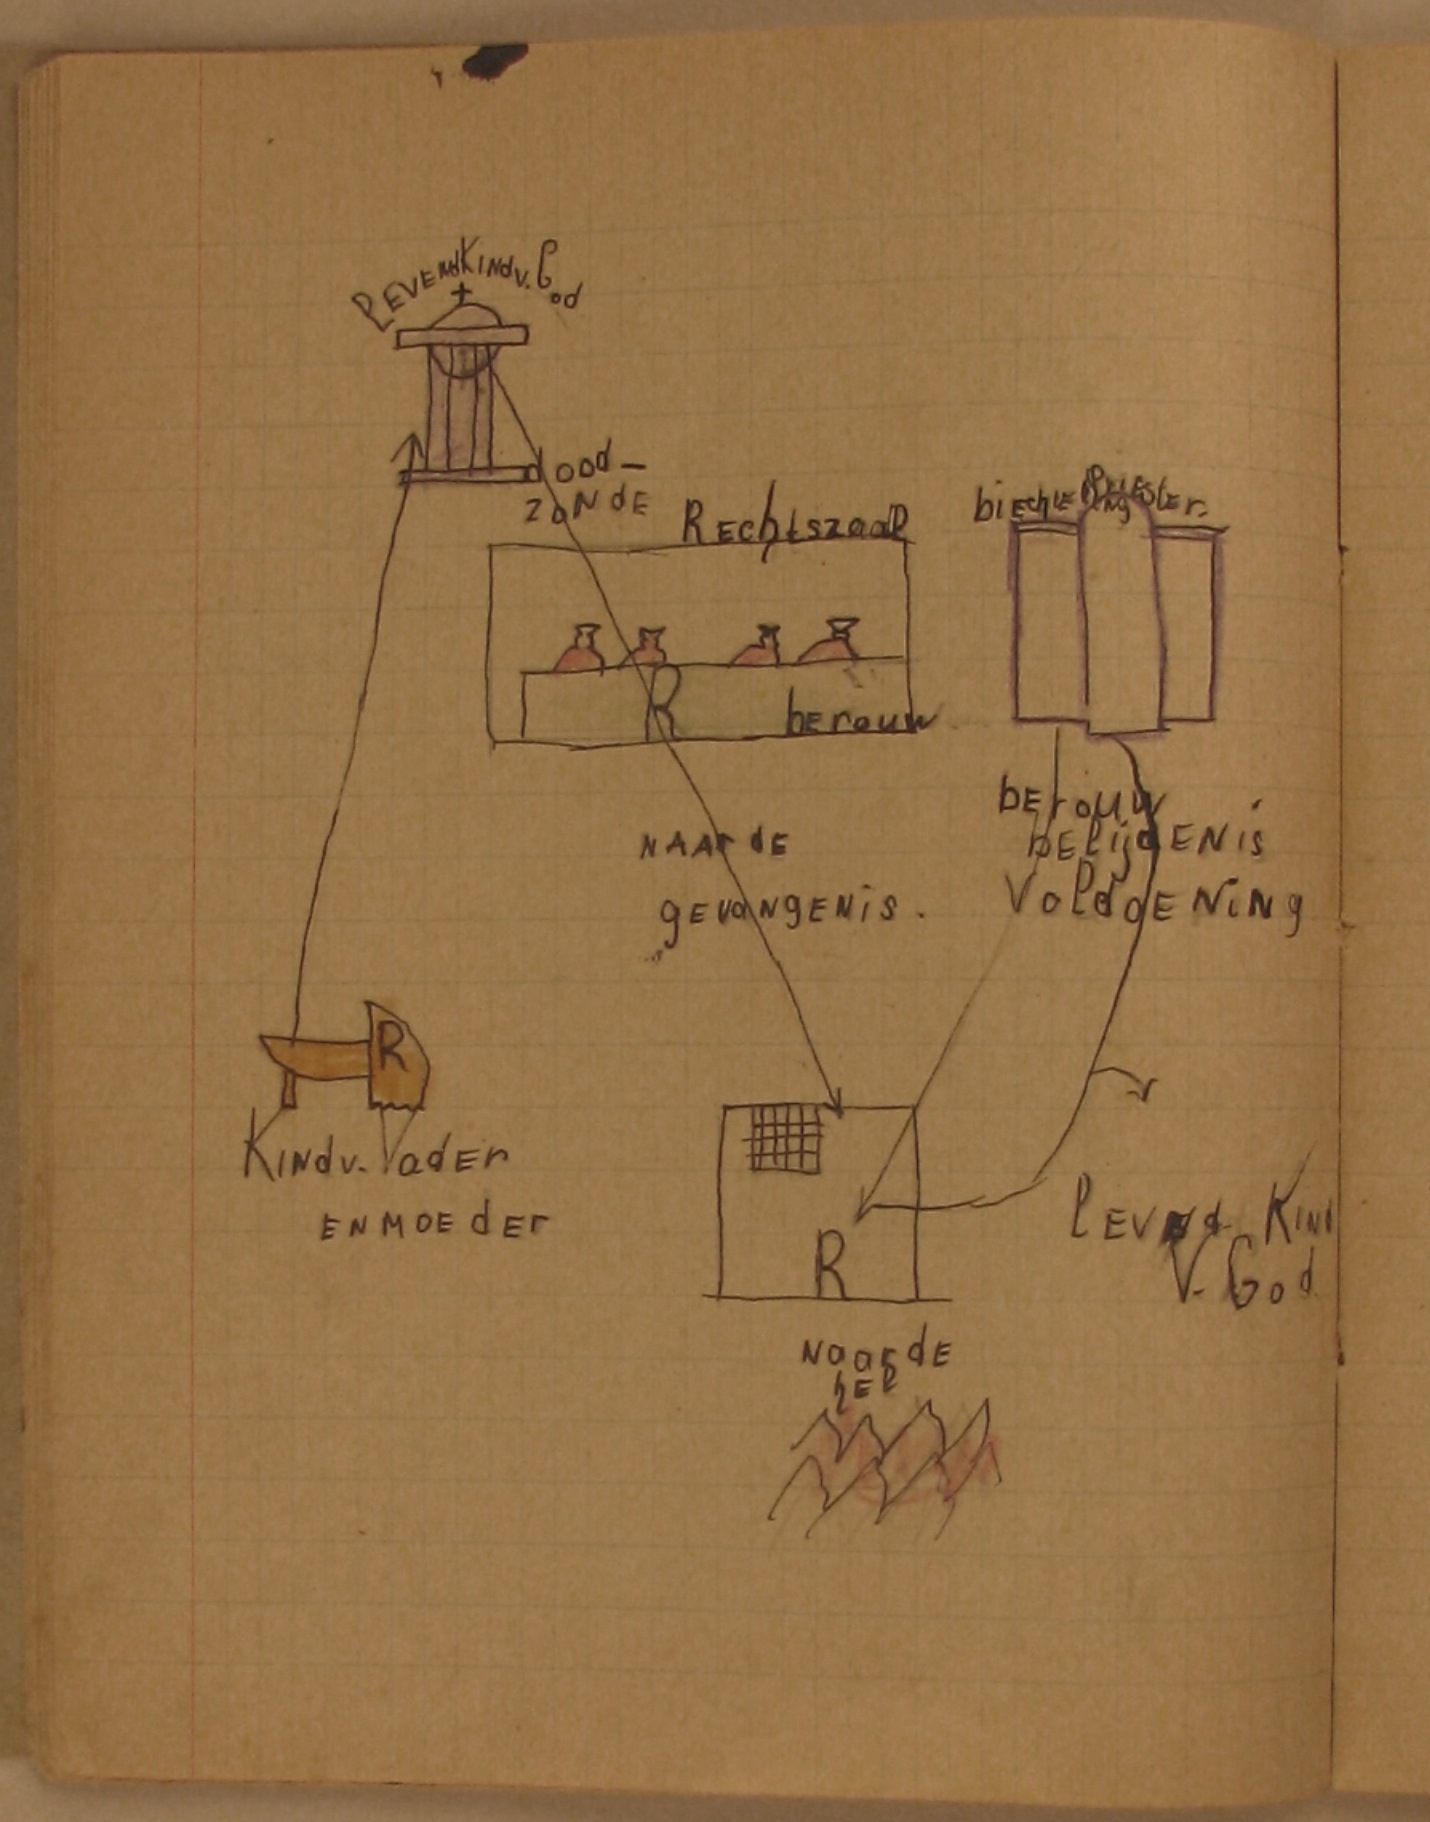 levend Kind v. God
dood-
zonde
Rechtszaal
biechteling Priester.
R
berouw
berouw
belijdenis
voldoening
naar de
gevangenis.
R
Kind v. Vader
en moeder
levend Kind
v. God
R
naar de
hel